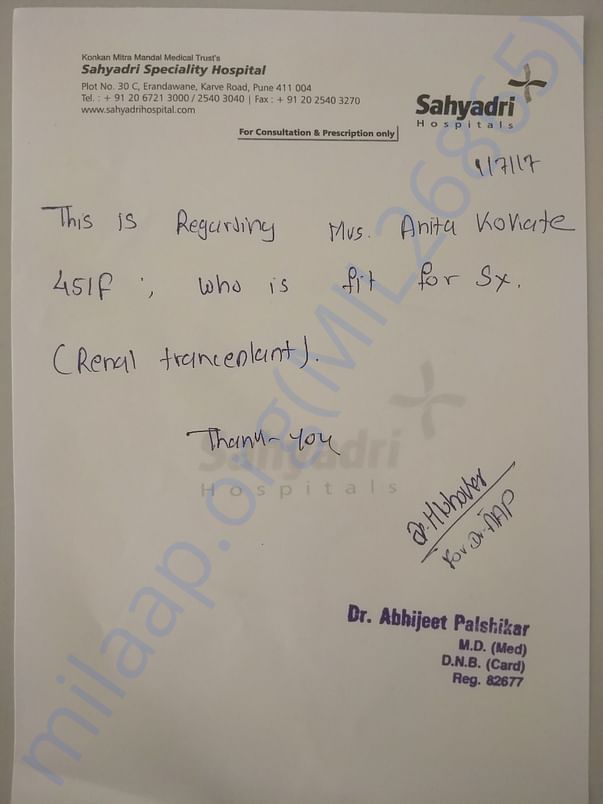 Konkan Mitra Mandal Medical Trust's
Sahyadri Speciality Hospital
Plot No. 30 C, Erandawane, Karve Road, Pune 411 004
Tel. : + 91 20 6721 3000 / 2540 3040 | Fax : + 91 20 2540 3270
www.sahyadrihospital.com
Sahyadri
Hospitals
For Consultation & Prescription only
1/7/17
This is Regarding Mrs. Anita Kohate
45/F , who is fit for Sx.
(Renal trancenlant).
Thank-you
Sahyadri
Hospitals
Dr.
for Dr. AAP
Dr. Abhijeet Palshikar
M.D. (Med)
D.N.B. (Card)
Reg. 82677
milaap.org(MIL268665)